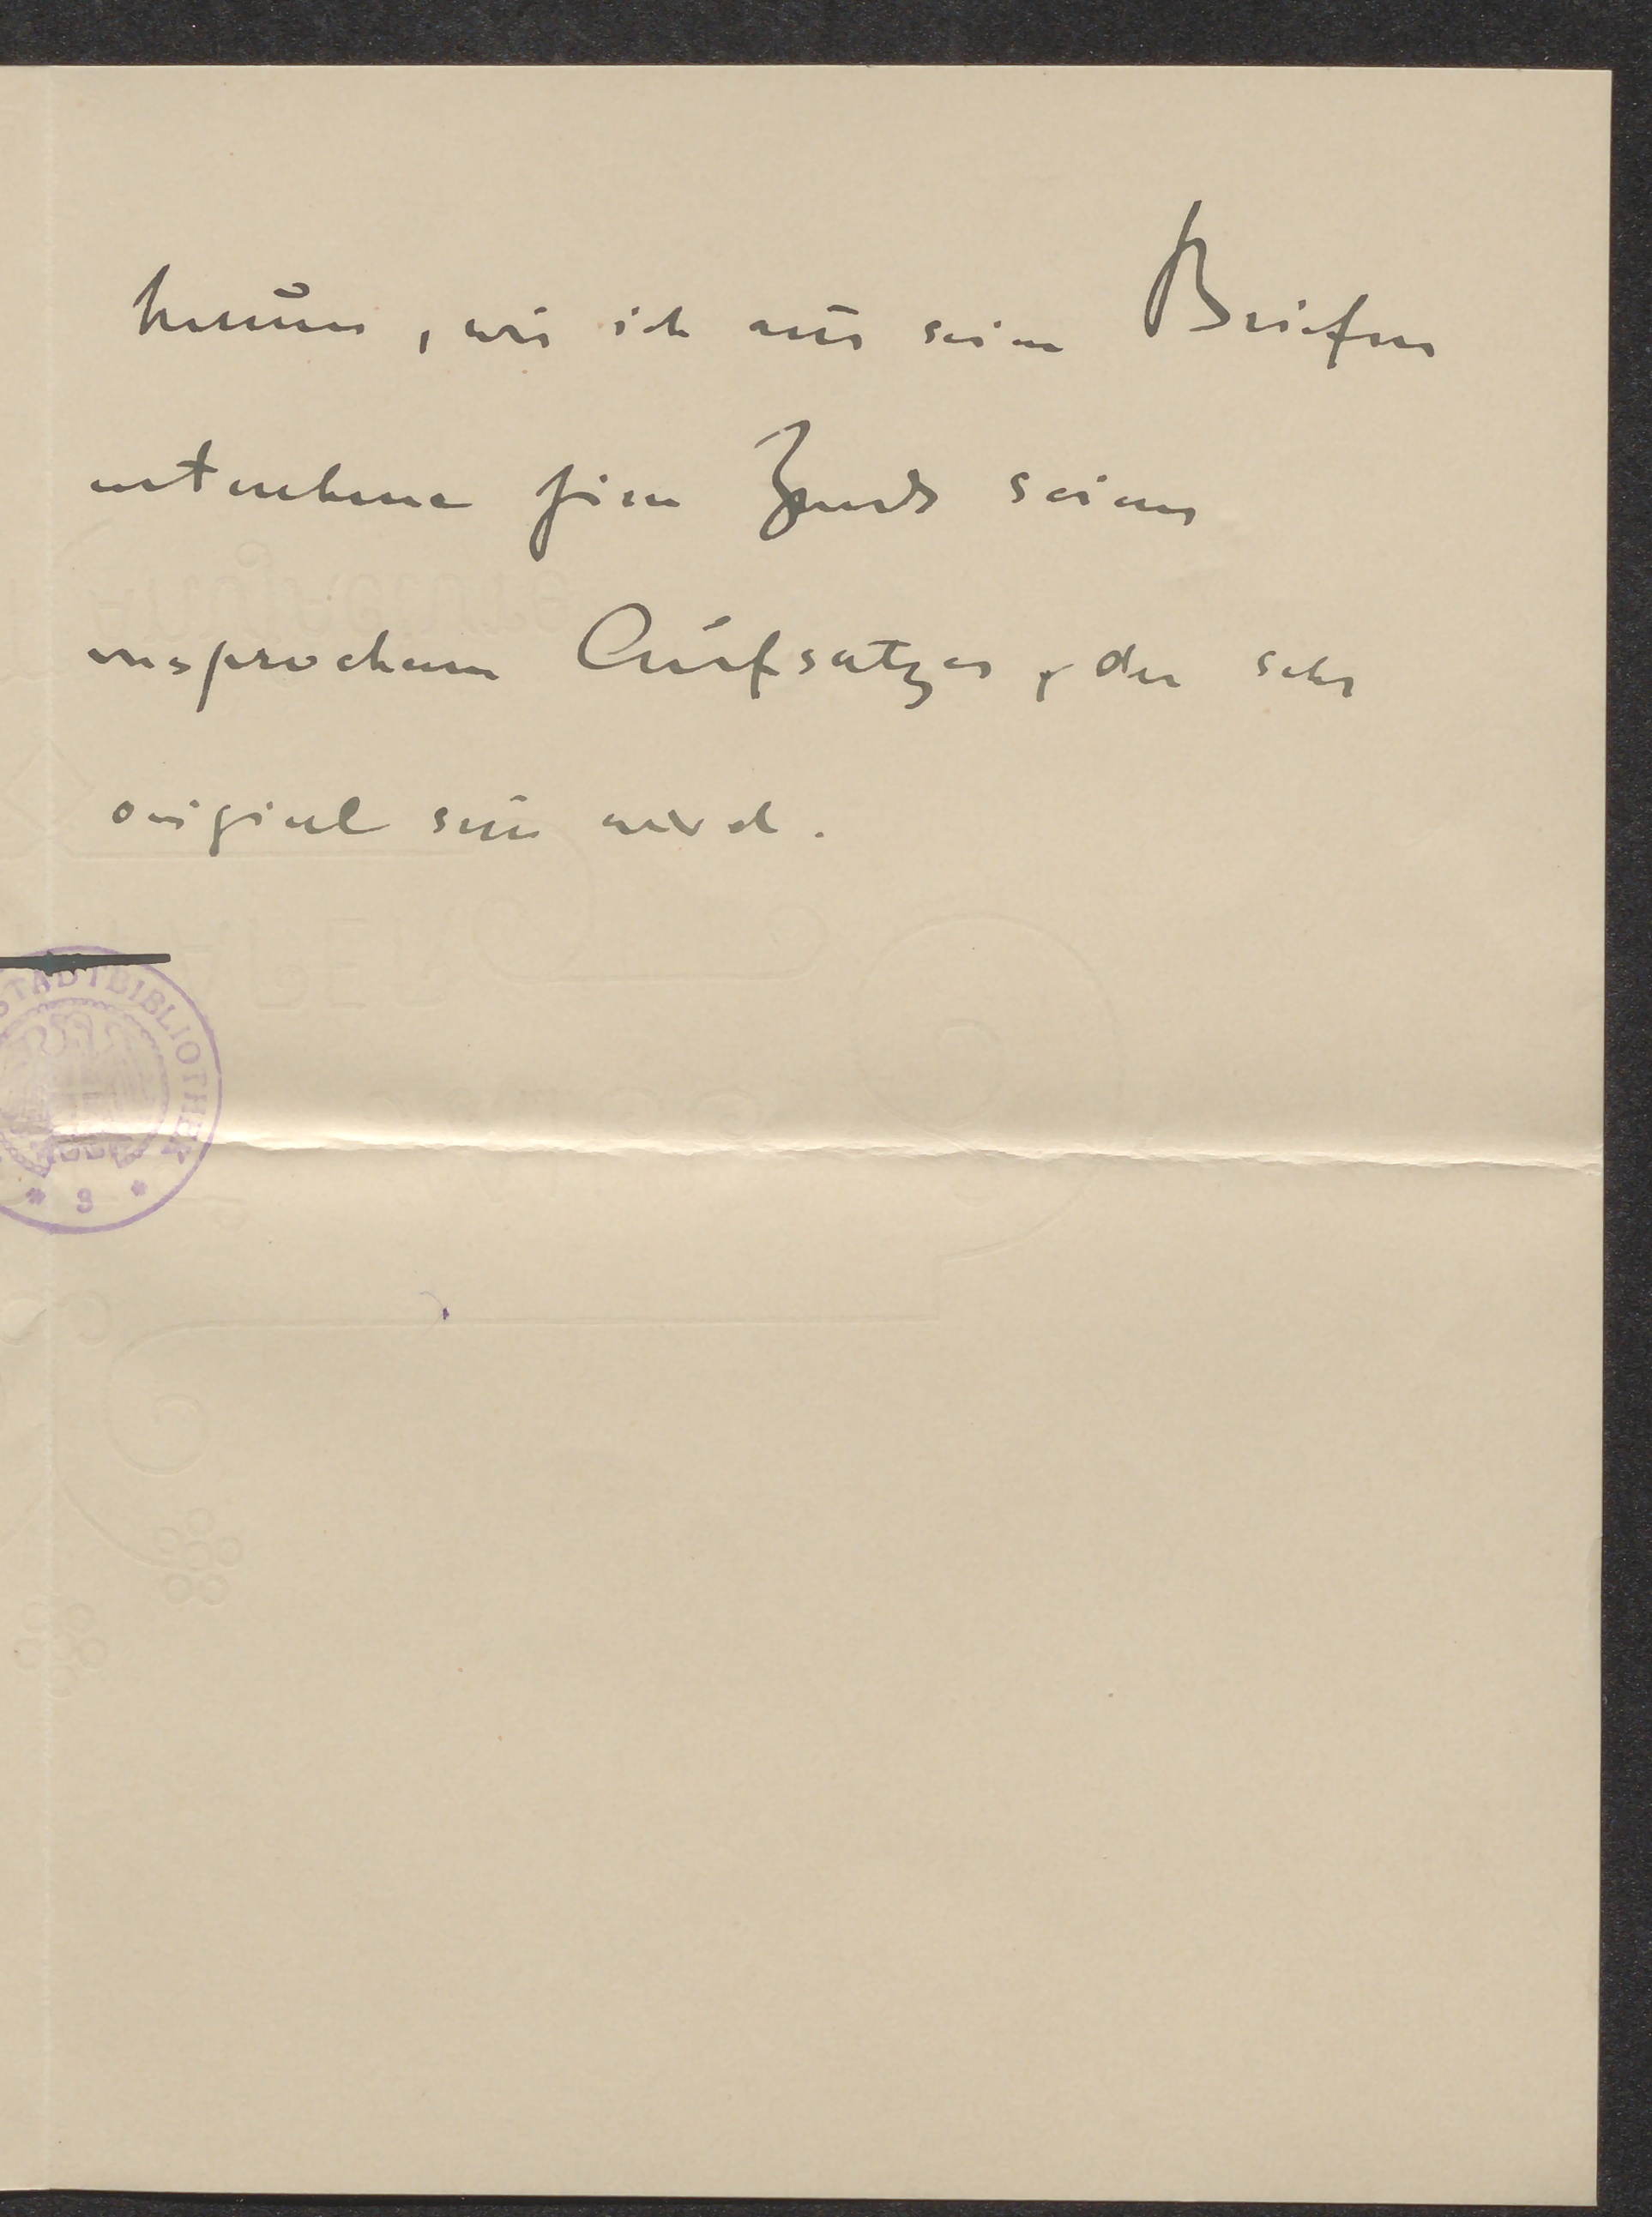 herum, wie ich aus seinen Briefen
entnehme zum Zweck seines
versprochenen Aufsatzes, der sehr
originel sein wird.
STADTBIBLIOTHEK
* 3 *